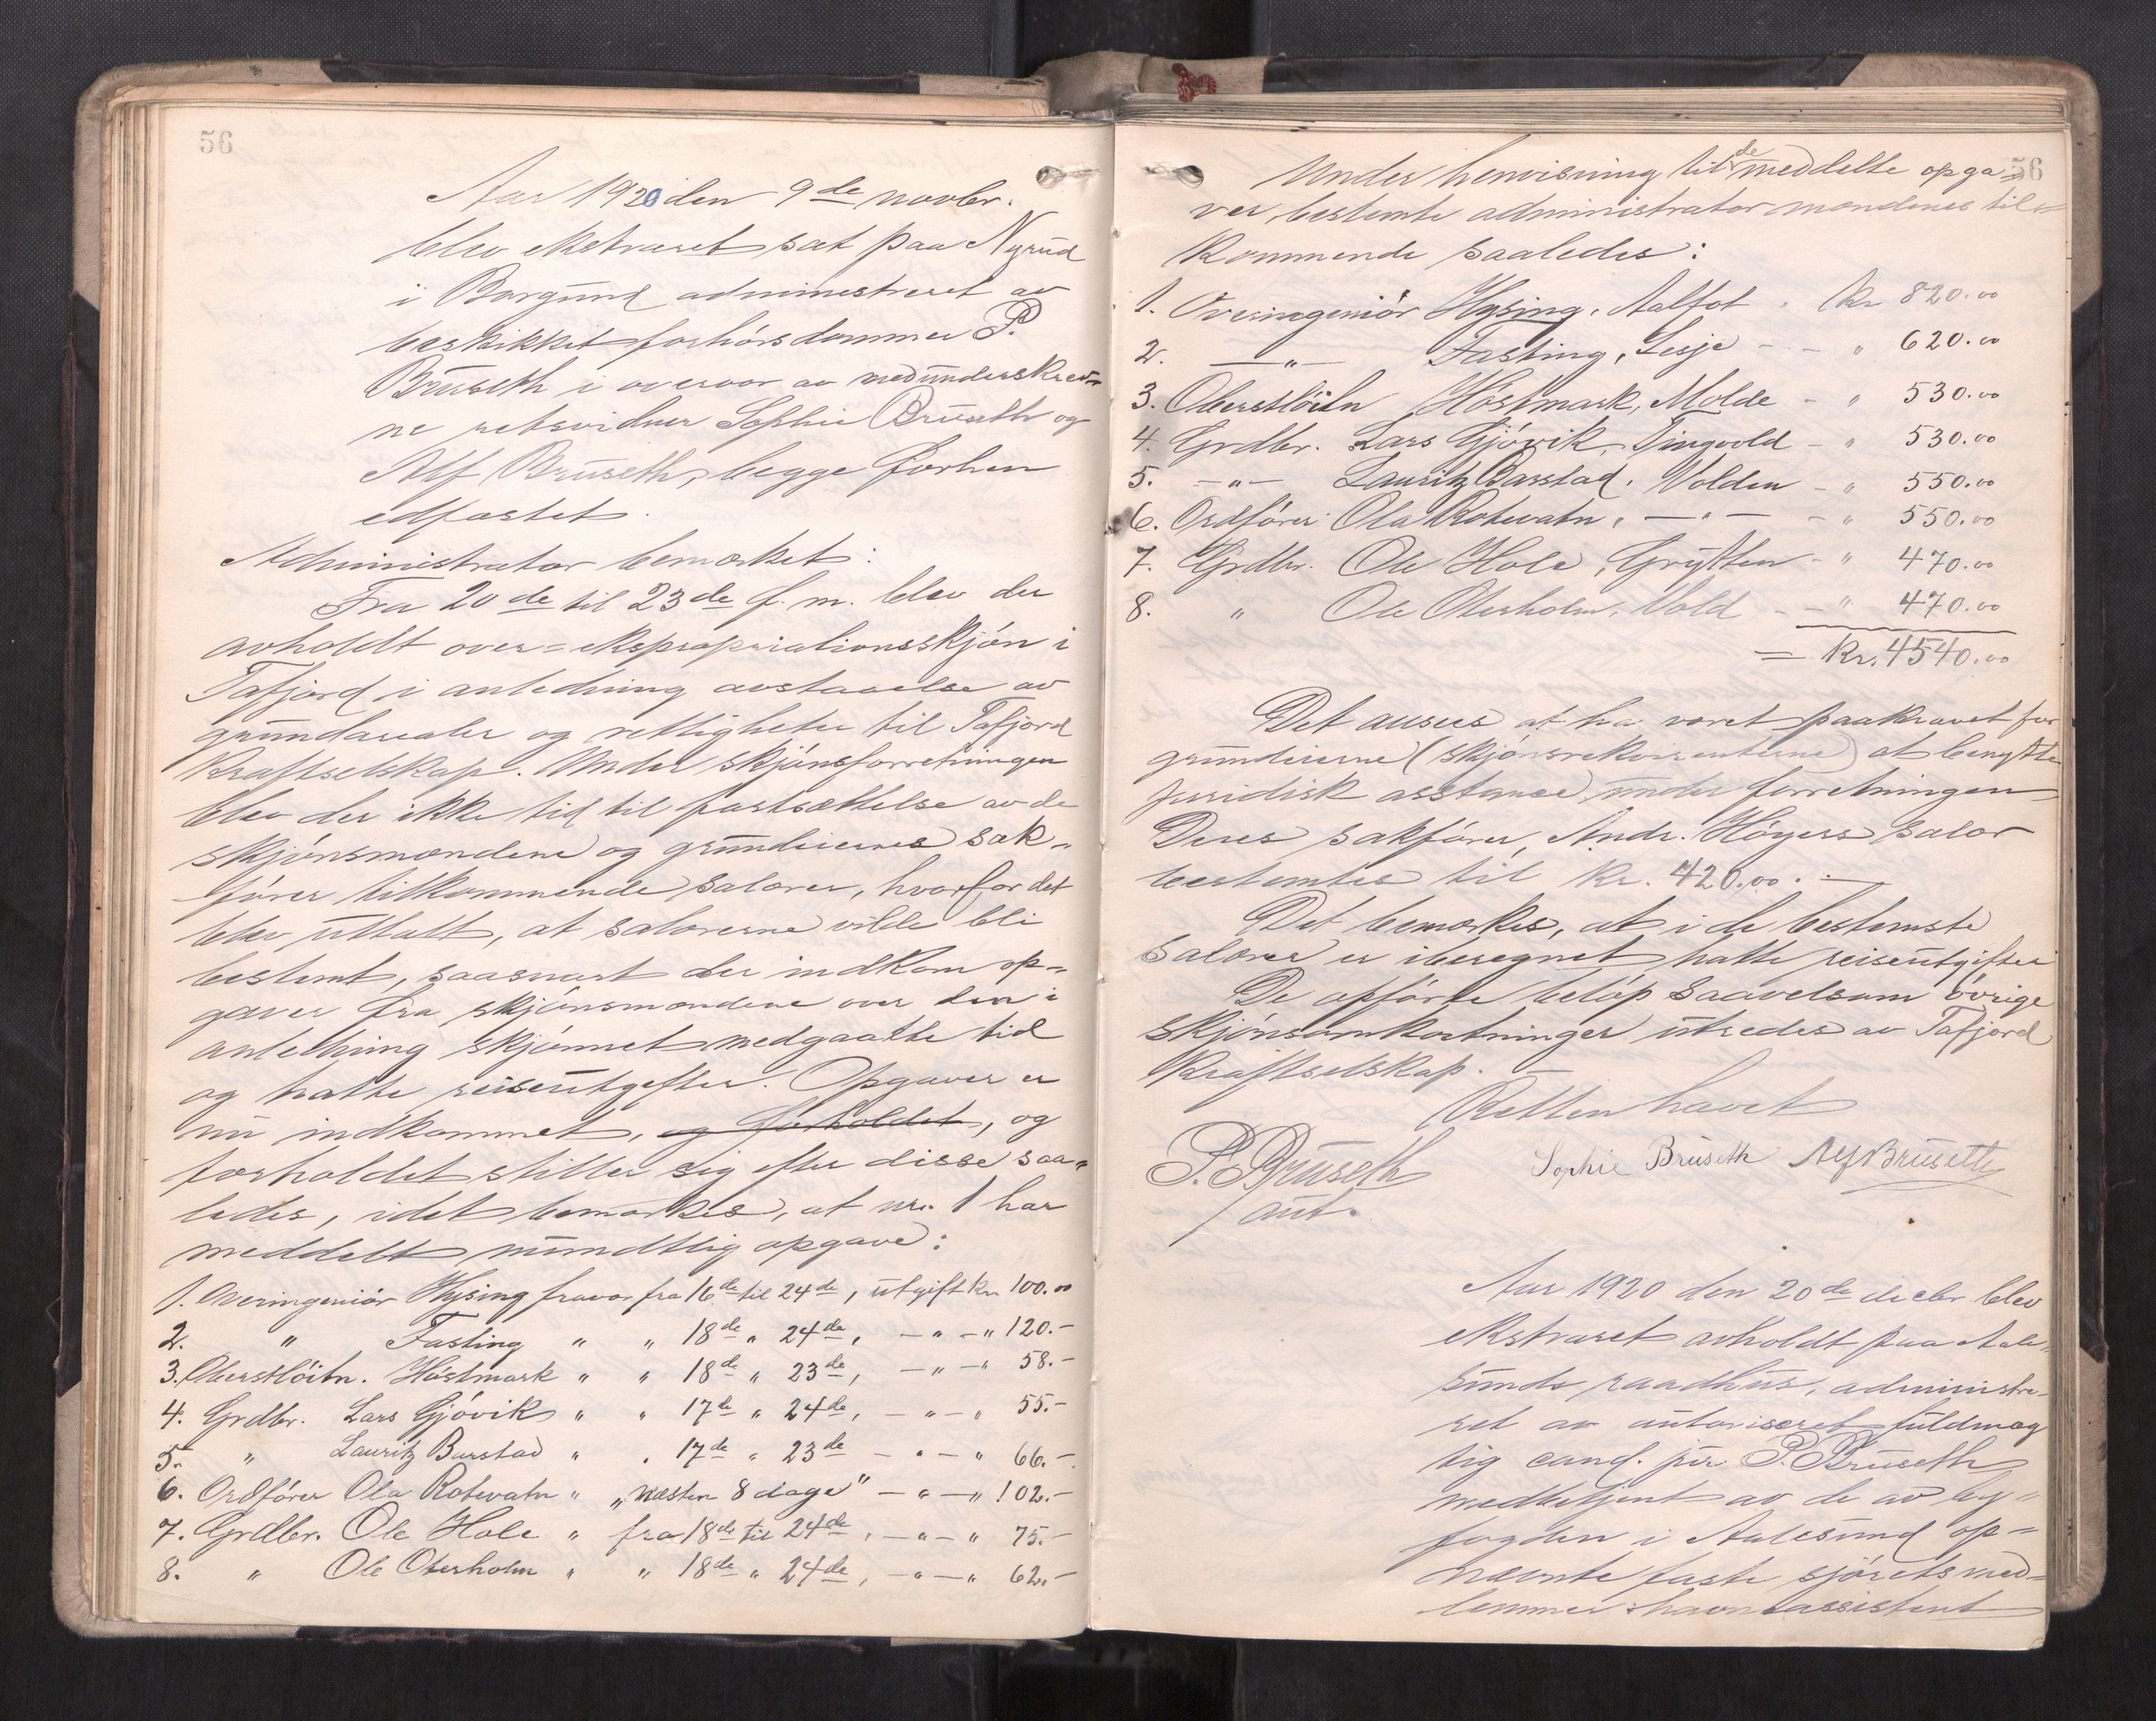 56
Aar 1920 den 9de novbr.
blev ekstraret sat paa Nyrud
i Borgund administreret av
beskikket forhörsdommer P.
Bruseth i overvær av medunderskrev-
ne retsvidner Sophie Bruseth og
Alf Bruseth, begge forhen
edfæstet.
Administrator bemærket:
Fra 20de til 23de f. m. blev der
avholdt over-ekspropriationsskjön i
Tafjord i anledning avstaaelse av
grundarealer og rettigheter til Tafjord
Kraftselskap. Under skjönsforretningen
blev der ikke tid til fastsættelse av de
skjönsmændene og grundeiernes sak-
förer tilkommende salærer, hvorfor det
blev uttalt, at salærerne vilde bli
bestemt, saasnart der indkom op-
gaver fra skjönsmændene over den i
anledning skjönnet medgaatte tid
og hatte reiseutgifter. Opgaver er
nu indkommet, og forholdet, og
forholdet stiller sig efter disse saa-
ledes, idet bemærkes, at nr. 1 har
meddelt mundtlig opgave:
1. Overingeniör Hysing fravær fra 16de til 24de, utgift kr 100.00
2. " Fasting " " 18de " 24de, - " - " 120.-
3. Oberstlöitn. Höstmark " " 18de " 23de, - " - " 58.-
4. Grdbr. Lars Gjövik " " 17de " 24de, - " - " 55.-
5. " Lauritz Barstad " " 17de " 23de - " - " 66.-
6. Ordförer Ola Rotevatn " "næsten 8 dage" - " - " 102.-
7. Grdbr. Ole Hole " fra 18de til 24de, - " - " 75.-
8. " Ole Oterholm " " 18de " 24de, - " - " 62.-
56
Under henvisning til de meddelte opga-
ver, bestemte administrator mændenes til-
kommende saaledes:
1. Overingeniör Hysing, Aalfot . Kr 820.00
2. -"- Fasting, Lesje - - " 620.00
3. Oberstlöitn Höstmark, Molde - " 530.00
4. Grdbr. Lars Gjövik, Tingvold - " 530.00
5. -"- Lauritz Barstad, Volden - " 550.00
6. Ordförer Ola Rotevatn, -"- - " 550.00
7. Grdbr. Ole Hole, Grytten - " 470.00
8. " Ole Oterholm, Vold - - " 470.00
= Kr. 4540.00
Det ansees at ha været paakrævet for
grundeierne (skjönsrekvirenterne) at benytte
juridisk asstance under forretningen.
Deres sakförer, Andr. Höyers salær
bestemtes til kr. 420.00. -
Det bemærkes, at i de bestemte
salærer er iberegnet hatte reiseutgifter
De opförte belöp saavelsom övrige
skjönsomkostninger utredes av Tafjord
Kraftselskap. -
Retten hævet
P. Bruseth Sophie Bruseth Alf Bruseth
aut.
Aar 1920 den 20de decbr. blev
ekstraret avholdt paa Aale-
sunds raadhus, administre-
ret av autoriseret fuldmæg
tig cand. jur. P. Bruseth
medbetjent av de av by-
fogden i Aalesund op-
nævnte faste sjöretsmed-
lemmer havneassistent